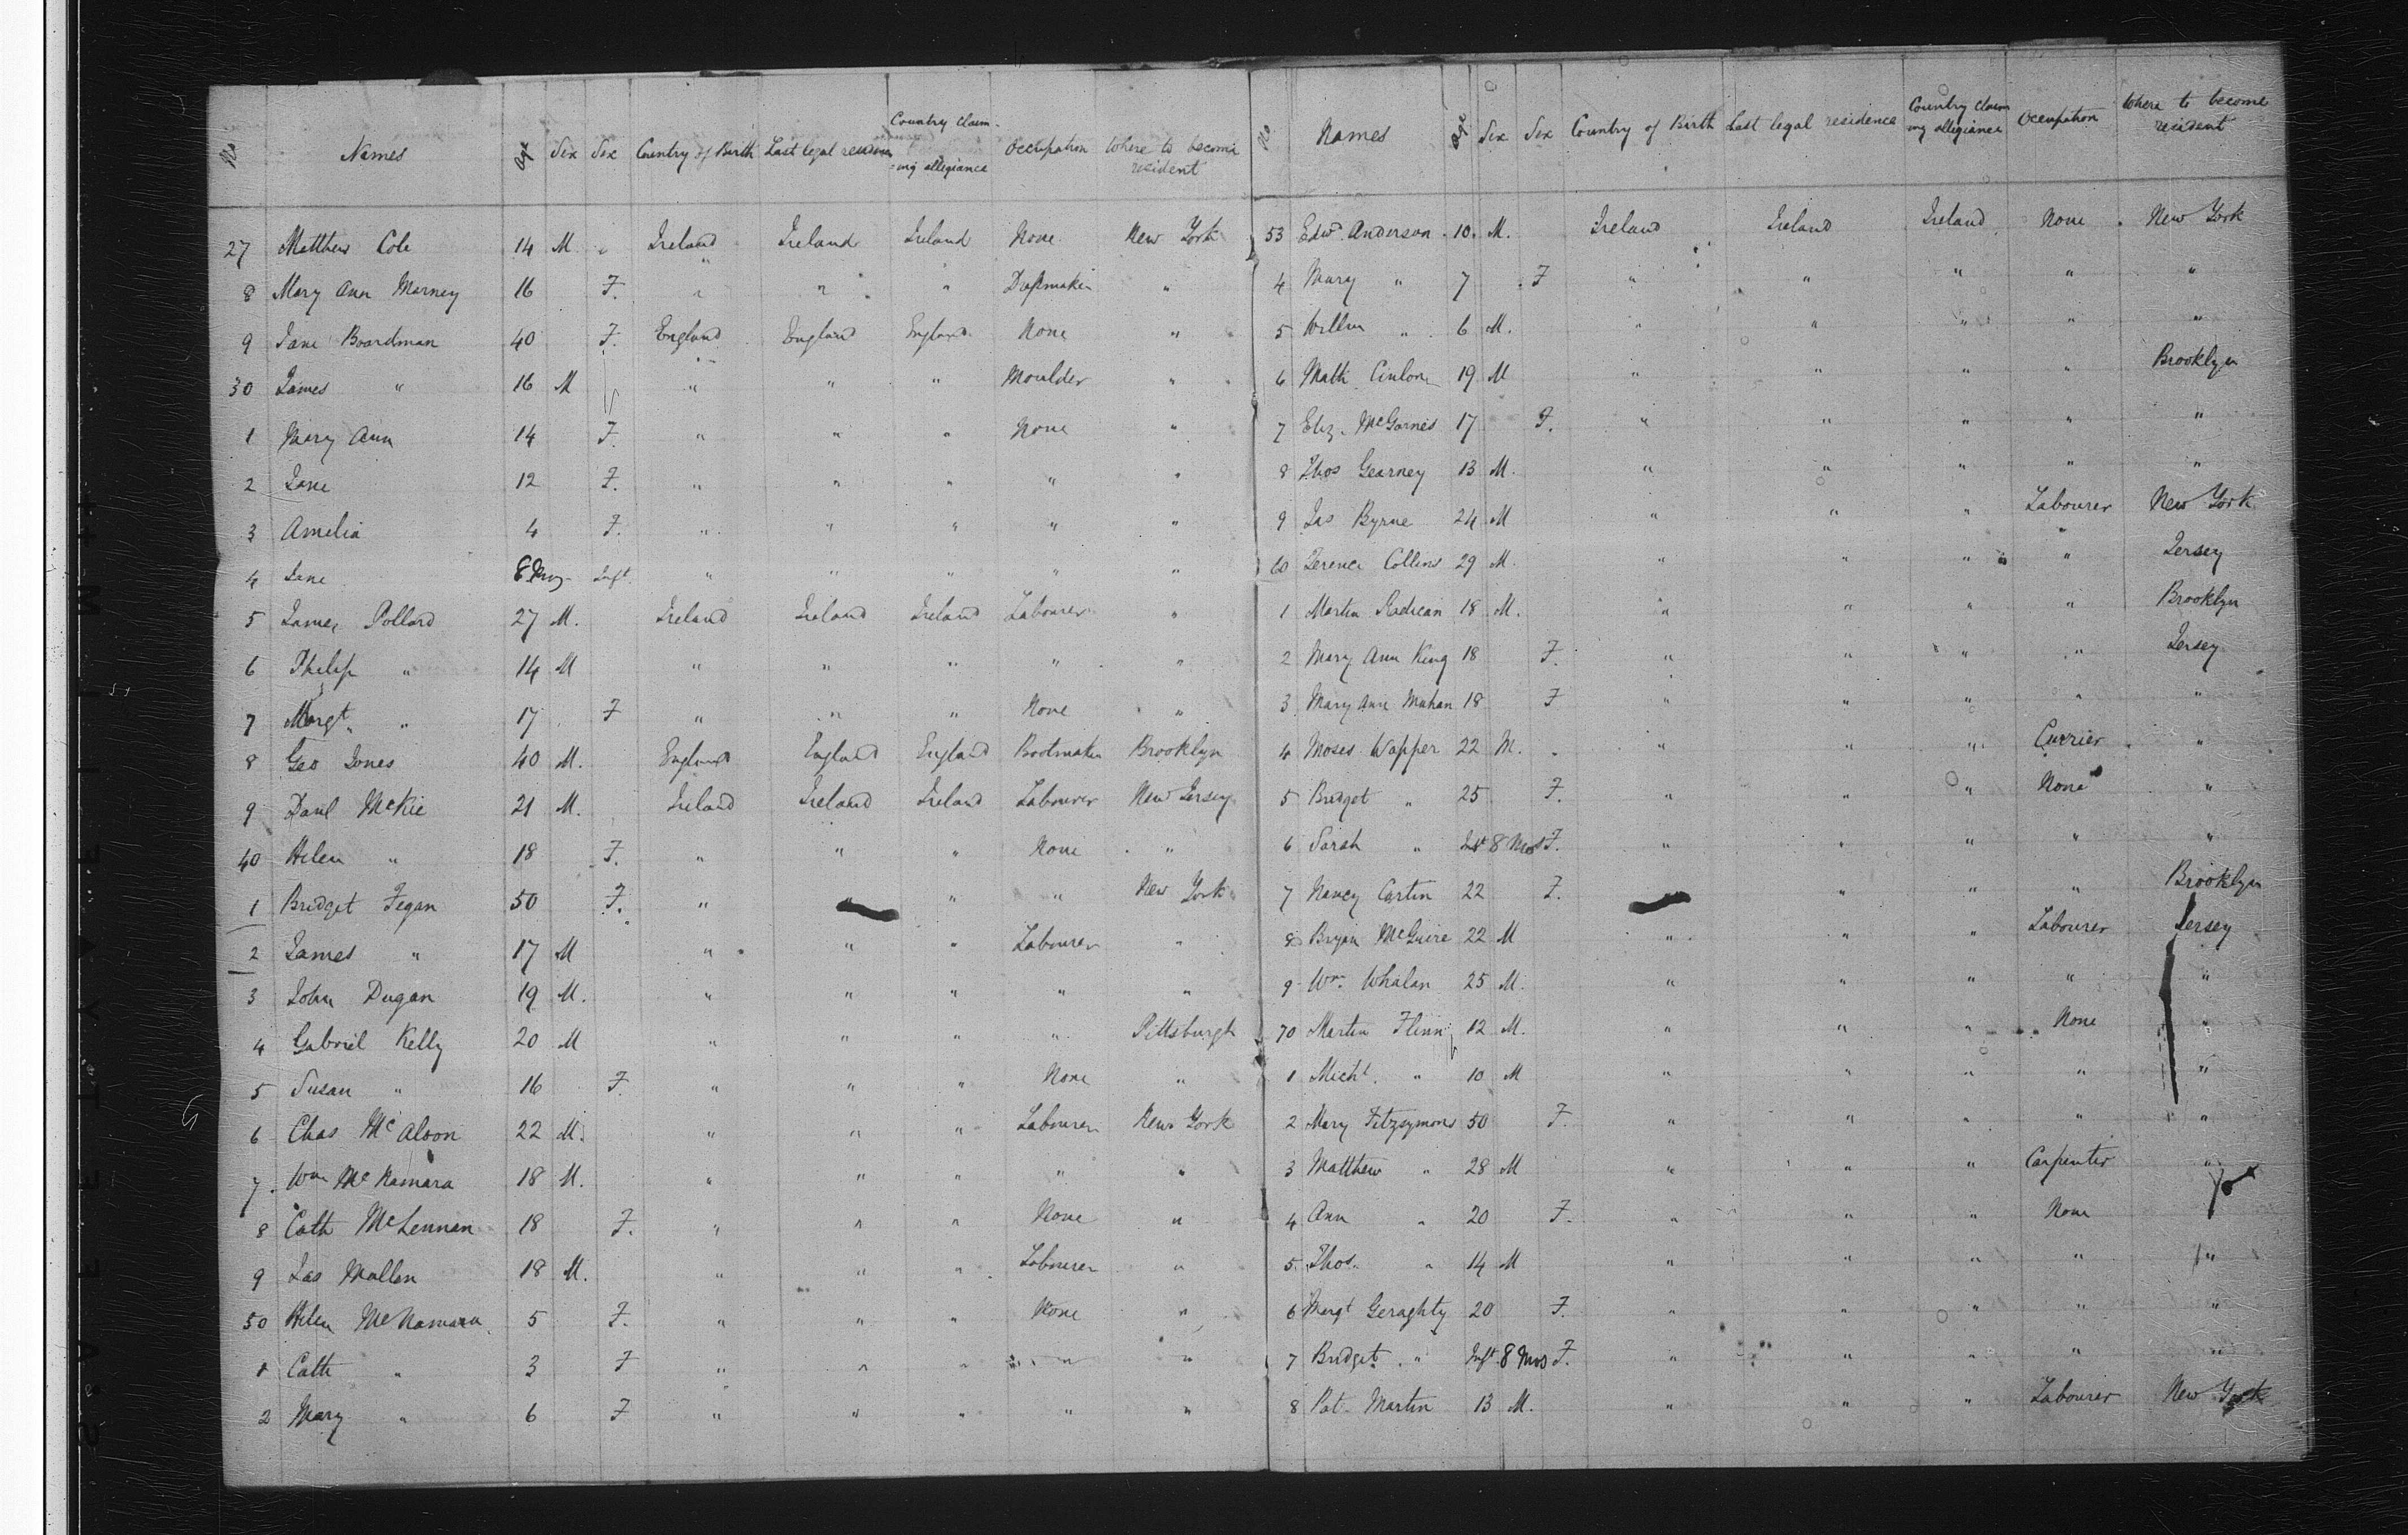 No Names Age Sex Sex Country of Birth Last legal residence Country claim-ing allegiance Occupation Where to become resident
27 Matthew Cole 14 M Ireland Ireland Ireland None New York
8 Mary Ann Marney 16 F. " " " Dressmaker "
9 Jane Boardman 40 F. England England England None "
30 James " 16 M " " " Moulder "
1 Mary Ann 14 F. " " " None "
2 Jane 12 F. " " " " "
3 Amelia 4 F. " " " " "
4 Jane 8 Mos Inft. " " " " "
5 James Pollard 27 M. Ireland Ireland Ireland Labourer "
6 Philip " 14 M " " " " "
7 Margt. " 17 F " " " None "
8 Geo Jones 40 M. England England England Bootmaker Brooklyn
9 Danl McKie 21 M. Ireland Ireland Ireland Labourer New Jersey
40 Helen " 18 F. " " " None "
1 Bridget Fegan 50 F. " " " " New York
2 James " 17 M " " " Labourer "
3 John Dugan 19 M. " " " " "
4 Gabriel Kelly 20 M " " " " Pittsburgh
5 Susan " 16 F. " " " None "
6 Chas McAloon 22 M. " " " Labourer New York
7 Wm McNamara 18 M. " " " " "
8 Cath McLennan 18 F. " " " None "
9 Jas Mullen 18 M. " " " Labourer "
50 Helen McNamara 5 F. " " " None "
1 Cath " 3 F " " " " "
2 Mary " 6 F " " " " "
No Names Age Sex Sex Country of Birth Last legal residence Country claim-ing allegiance Occupation Where to become resident
53 Edwd. Anderson 10. M. Ireland Ireland Ireland None New York
4 Mary " 7 F " " " " "
5 Willm " 6 M. " " " " "
6 Math 19 M " " " " Brooklyn
7 Eliz. 17 F. " " " " "
8 Thos Gearney 13 M. " " " " "
9 Jas Byrne 24 M " " " Labourer New York
60 Terence Collins 29 M. " " " " Jersey
1 Martin Radican 18 M. " " " " Brooklyn
2 Mary Ann King 18 F. " " " " Jersey
3 Mary Ann Mahan 18 F " " " " "
4 Moses Wapper 22 M. " " " Currier "
5 Bridget " 25 F. " " " None "
6 Sarah " Inft 8 Mos F. " " " " "
7 Nancy Cartin 22 F. " " " " Brooklyn
8 Bryan McGuire 22 M " " " Labourer Jersey
9 Wm. Whalan 25 M. " " " " "
70 Martin Flinn 12 M. " " " None "
1 Michl. " 10 M " " " " "
2 Mary Fitzsymons 50 F. " " " " "
3 Matthew " 28 M " " " Carpenter "
4 Ann " 20 F. " " " None
5 Thos. " 14 M " " " " "
6 Margt Geraghty 20 F. " " " " "
7 Bridget " Inft. 8 Mos F. " " " " "
8 Pat Martin 13 M. " " " Labourer New York